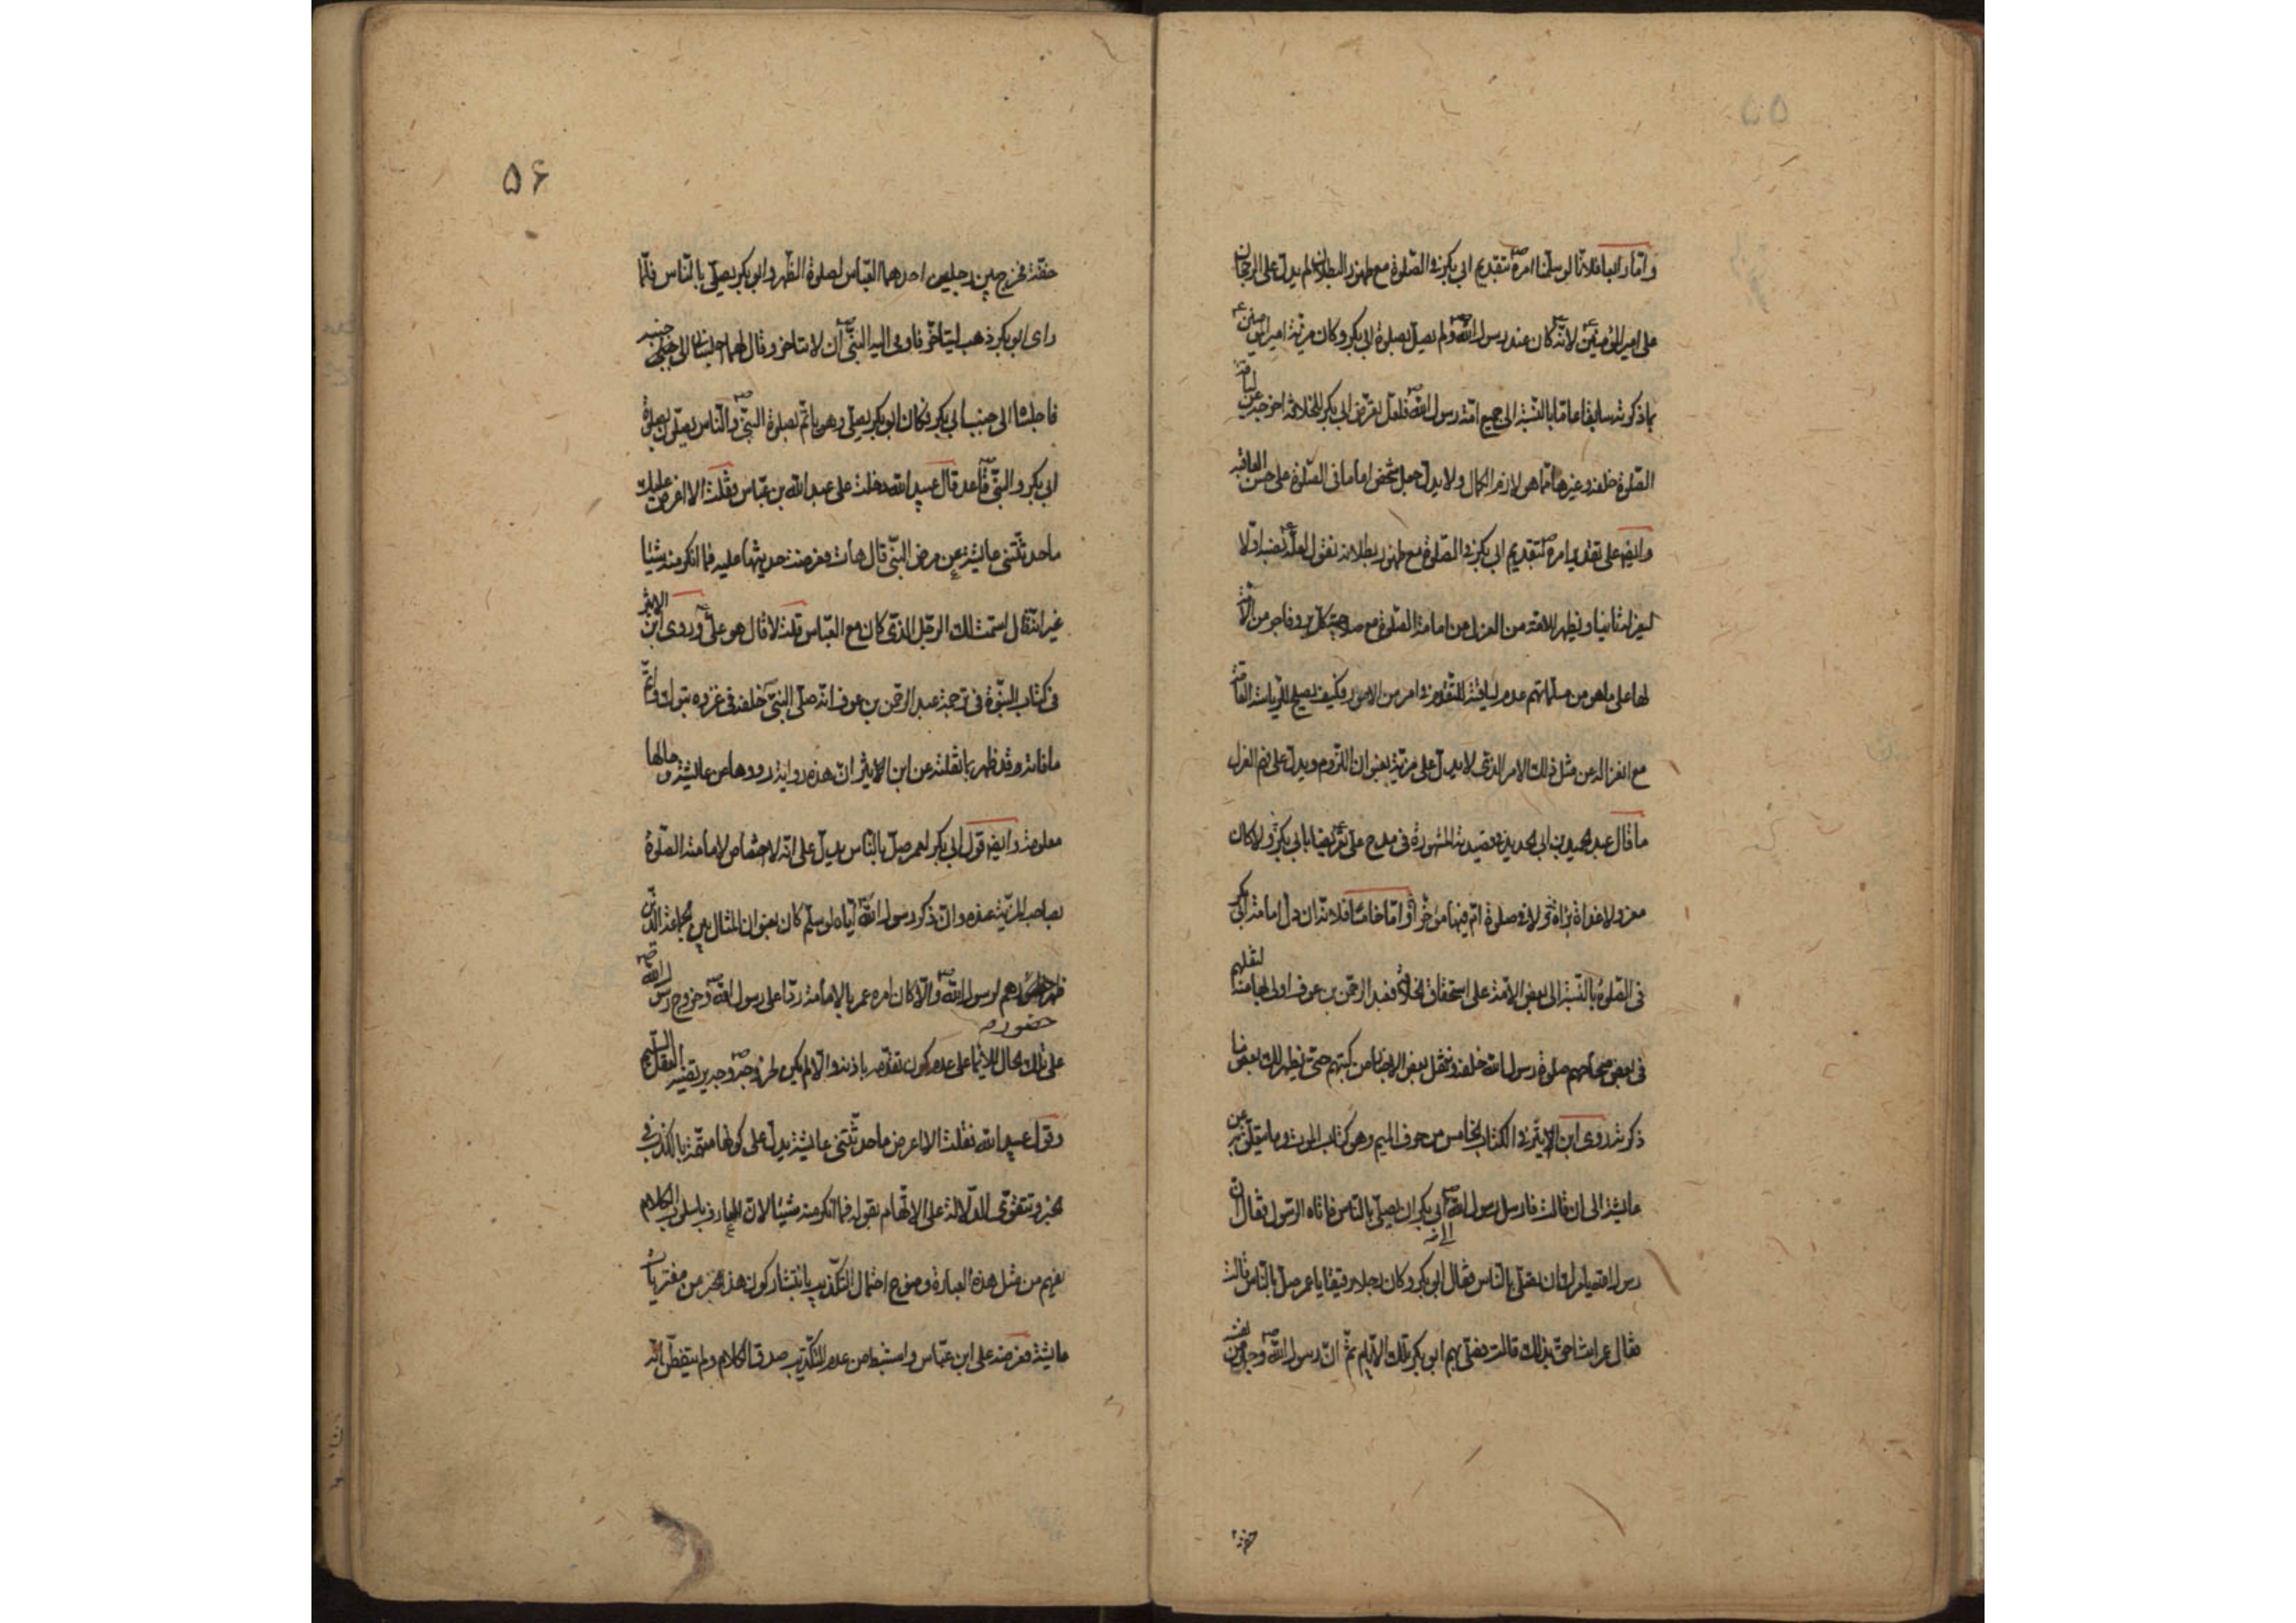 ۵۵
وامّا رابعا فلانّا لو سلّمنا امره ص بتقديم ابي بكر في الصّلوة مع ظهور البطلان لم يدلّ على الرجحان
على امير المؤمنين ع لانّه ع كان عند رسول الله ص ولم يصلّ بصلوة ابي بكر وكان مرتبة امير المؤمنين ع
بما ذكرته سابقا بالنسبة الى جميع امّة رسول الله ص فلعلّ تعرّض ابي بكر للخلافة اخرجه عن لياقة
الصّلوة خلفه وغيرها ممّا هو لازم الكمال ولا يدلّ جعل شخص اماما في الصّلوة على حسن العاقبة
وايضا على تقدير امره ص بتقديم ابي بكر في الصّلوة مع ظهور بطلانه نقول لعلّه ع نصبه اوّلا
ليعزله ثانيا ويظهر للامّة من العزل من امامة الصّلوة مع صلاحية كلّ برّ وفاجر من الامّة
لها على ما هو من مسلّماتهم عدم لياقته للتقدّم في امر من الامور فكيف يصلح للرياسة العامّة
مع انعزاله عن مثل ذلك الامر الذي لا يدلّ على مرتبة بعنوان اللزوم ويدلّ على فهم العزل
ما قال عبد الحميد بن ابي الحديد في قصيدته المشهورة في مدح علي ع تعريضا بابي بكر ولا كان
معزولا غداة براءة ولا في صلوة امّ فيها مؤخّرا وامّا خامسا فلانّه ان دلّ امامة ابي بكر
في الصّلوة بالنسبة الى بعض الامّة على استحقاق الخلافة فعبد الرحمن بن عوف اولى بها لنقلهم
في بعض صحاحهم صلوة رسول الله خلفه وننقل بعض الاخبار من كتبهم حتّى يظهر لك بعض ما
ذكرته روى ابن الاثير في الكتاب الخامس من حرف الميم وهو كتاب الموت وما يتعلّق به عن
عايشة الى ان قالت فارسل رسول الله ص الى ابي بكر ان يصلّي بالناس فاتاه الرسول فقال انّ
رسول الله يامرك ان تصلّي بالناس فقال ابو بكر وكان رجلا رقيقا يا عمر صلّ بالناس قالت
فقال عمر انت احقّ بذلك قالت فصلّى بهم ابو بكر تلك الايّام ثمّ انّ رسول الله ص وجد من نفسه
خفة
۵۶
خفّة فخرج بين رجلين احدهما العبّاس لصلوة الظهر وابو بكر يصلّي بالناس فلمّا
راى ابو بكر ذهب ليتاخّر فاومى اليه النبيّ ص ان لا تتاخر وقال لهما اجلساني الى جنبه
فاجلساه الى جنب ابي بكر فكان ابو بكر يصلّي وهو ياتمّ بصلوة النبيّ ص والناس يصلّون بصلوة
ابي بكر والنبيّ ص قاعد قال عبيد الله دخلت على عبد الله بن عبّاس فقلت الا اعرض عليك
ما حدثّتني عايشة عن مرض النبيّ قال هات فعرضت حديثها عليه فما انكر منه شيئا
غير انّه قال اسمّت لك الرجل الذي كان مع العبّاس قلت لا قال هو عليّ ع وروى ابن الاثير
في كتاب النبوّة في ترجمة عبد الرحمن بن عوف انّه صلّى النبيّ ص خلفه في غزوه تبوك واتمّ
ما فاته وقد ظهر بما نقلته عن ابن الاثير انّ هذه رواية رووها عن عايشة وحالها
معلومة وايضا قول ابي بكر لعمر صلّ بالناس يدلّ على انّه لا اختصاص لامامة الصّلوة
بصاحب المرتبة عنده وانّ ذكر رسول الله ص ايّاه لو سلّم كان بعنوان المثال بين الجماعة الذين
حضورهم لرسول الله ص والّا كان امره عمر بالامامة ردّا على رسول الله ص وخروج رسول الله ص
على تلك الحال للايماء على عدم كون تقدّمه باذنه والّا لم يكن لخروجه ص وجه يرتضيه العقل السليم
وقول عبيد الله فقلت الا اعرض ما حدثّتني عايشة يدلّ على كونها متّهمة بالكذب في
الخبر وتتقوّى الدلالة على الاتّهام بقوله فما انكر منه شيئا لانّ العارف باسلوب الكلام
يفهم من مثل هذه العبارة وضوح احتمال التكذيب بانتشار كون هذا الخبر من مفتريات
عايشة فعرضه على ابن عبّاس واستنبط من عدم التكذيب صدق الكلام ولم يتفطّن انّه